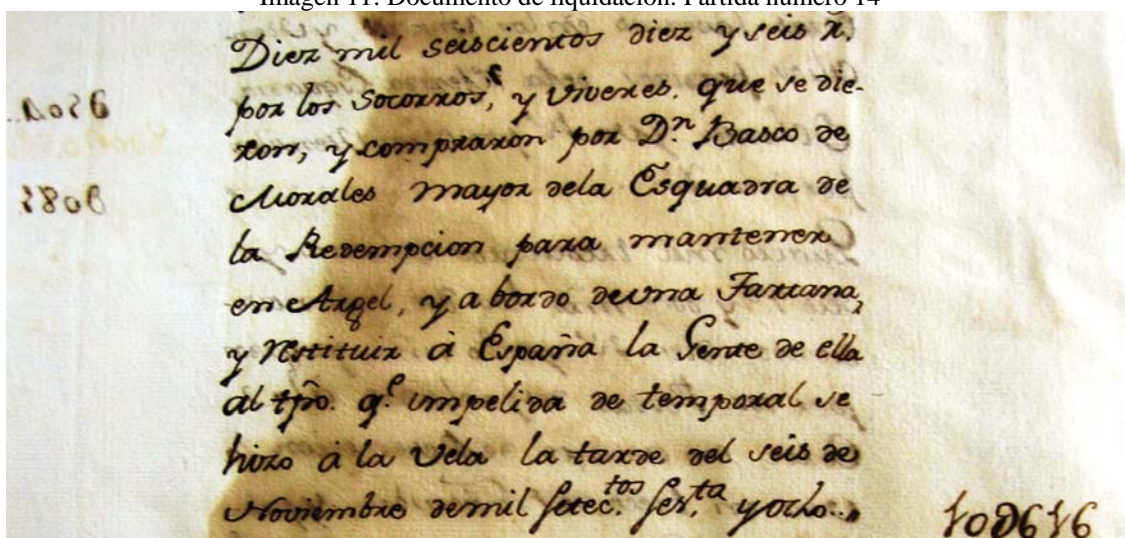 Imagen 11. Documento de liquidación. Partida número 14
Diez mil seiscientos diez y seis r.ˢ
por los Socorros, y viveres. que se die-
ron, y compraron por D.ⁿ Basco de
Morales mayor dela Esquadra de
la Redempcion para mantener
en Argel, y a bordo deuna Tartana,
y restituir á España la Gente de ella
al tpõ. q.ᵉ impelida de temporal se
hizo á la Vela la tarde del seis de
Noviembre demil setec.ᵗᵒˢ ses.ᵗᵃ y ocho..
10Ð616